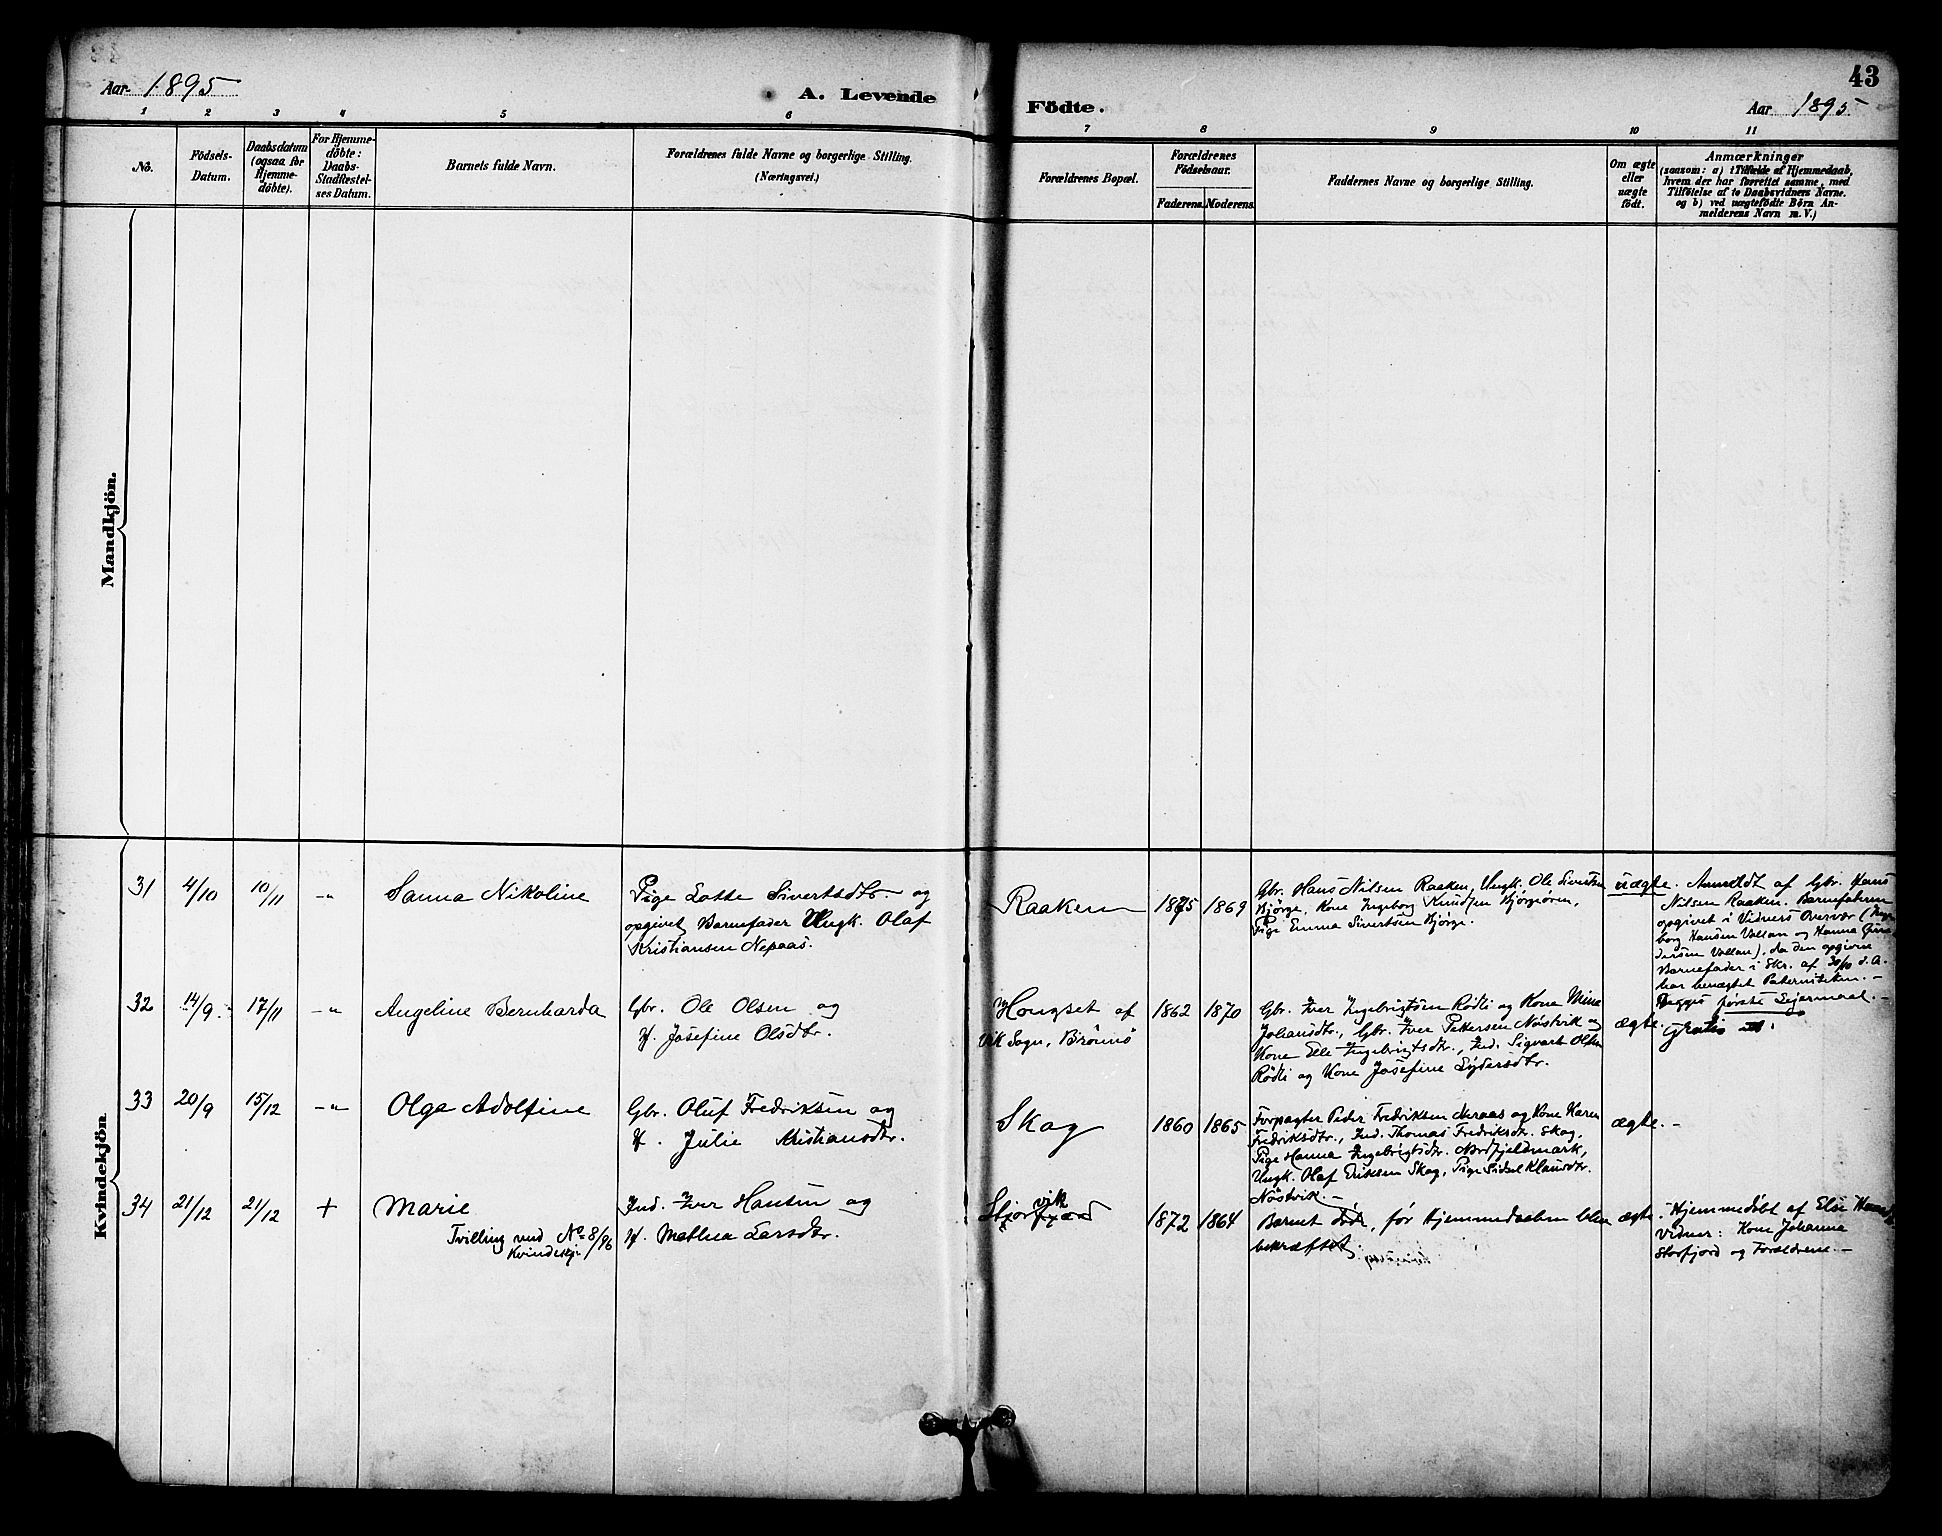 43
Aar 1895
A. Levende Födte.
Aar 1895
1 2 3 4 5 6 7 8 9 10 11
No.
Födsels-
Datum.
Daabsdatum
(ogsaa for
Hjemme-
döbte).
For Hjemme-
döbte:
Daabs-
Stadfæstel-
ses Datum.
Barnets fulde Navn.
Forældrenes fulde Navne og borgerlige Stilling.
(Næringsvei.)
Forældrenes Bopæl.
Forældrenes
Födselsaar.
Faderens. Moderens.
Faddernes Navne og borgerlige Stilling.
Om ægte
eller
uægte
födt.
Anmærkninger
(saasom: a) i Tilfælde af Hjemmedaab,
hvem der har forrettet samme, med
Tilföielse af to Daabsvidners Navne.
og b) ved uægtefödte Börn An-
melderens Navn m. V.)
Mandkjön.
Kvindekjön
31 4/10 10/11 -"-
Sanna Nikoline
Pige Lotte Sivertsdtr. og
opgivet Barnefader Ungk. Olaf
Kristiansen Nepaas.
Raaken
1875 1869
Gbr. Hans Nilsen Raaken, Ungk. Ole Sivertsen
Bjørge, Kone Ingeborg Knudsen Bjørgeören,
Pige Emma Sivertsen Bjørge.
uægte.
Anmeldt af Gbr. Hans
Nilsen Raaken. Barnefaderen
opgivet i Vidners Overvær (Inge-
borg Hansen Vollan og Hanna
Vollan), da den opgivne
Barnefader i Skr. af 30/10 d. A.
har benægtet Paterniteten. -
Begges første Leiermaal. -
32 14/9 17/11 -"-
Angeline Bernharda
Gbr. Ole Olsen og
H. Josefine Olsdtr.
Hongset af
Vik Sogn, Brönnö
1862 1870
Gbr. Iver Ingebrigtsen Rödli og Kone Mina
Johansdtr., Gbr. Iver Pettersen Nöstvik og
Kone Elle Ingebrigtsdtr., Ind. Sigvart Olsen
Rödli og Kone Josefine
ægte.
Gratis
33 20/9 15/12 -"-
Olga Adolfine
Gbr. Oluf Fredriksen og
H. Julie Kristiansdtr.
Skog
1860 1865
Forpagter Peder Fredriksen Meraas og Kone Karen
Fredriksdtr., Ind. Thomas Fredriksdtr. Skog,
Pige Hanna Ingebrigtsdtr. Nordfjeldmark,
Ungk. Olaf Eriksen Skog, Pige Sidsel Klausdtr.
Nöstvik. -
ægte. -
34 21/12 21/12 +
Marie
Tvilling med No 8/96
Kvindekj.
Ind. Iver Hansen og
H. Mathea Larsdtr.
vik
1872 1864
Barnet döde, før Hjemmedaaben blev
bekræftet.
ægte.
Hjemmedöbt af Else
Vidner: Kone Johanna
Storfjord og Forældrene. -